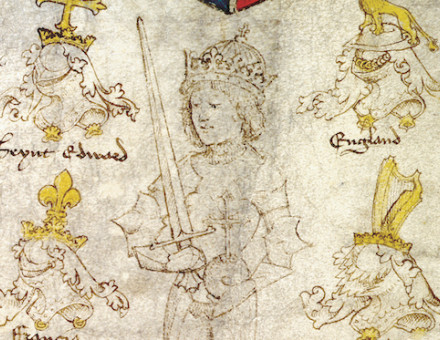 Seynt Edward
England
Francis